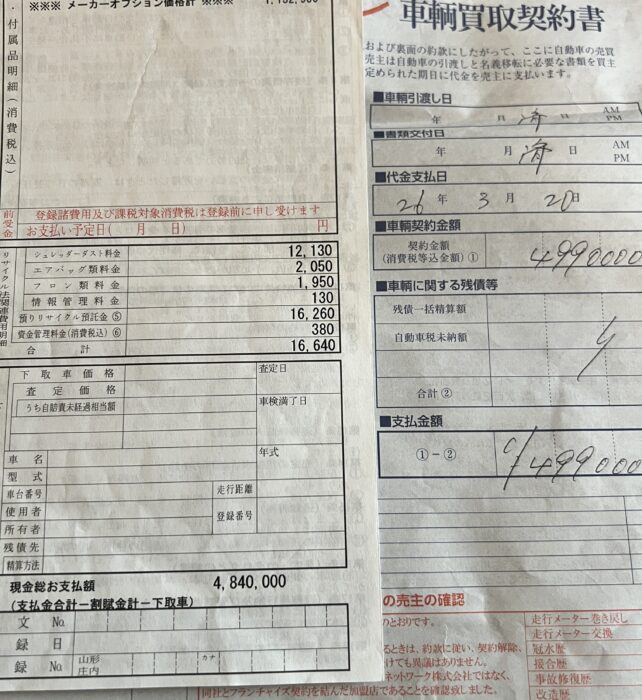 ※※※ メーカーオプション価格計 ※※※
付属品明細(消費税込)
前受金
登録諸費用及び課税対象消費税は登録前に申し受けます
お支払い予定日( 月 日) 円
リサイクル法関連費用明細
シュレッダーダスト料金 12,130
エアバッグ類料金 2,050
フロン類料金 1,950
情報管理料金 130
預りリサイクル預託金⑤ 16,260
資金管理料金(消費税込)⑥ 380
合計 16,640
下取車価格 査定日
査定価格
うち自賠責未経過相当額 車検満了日
車名 年式
型式
車台番号 走行距離
使用者 登録番号
所有者
残債先
精算方法
現金総お支払額 4,840,000
(支払金合計-割賦金計-下取車)
文 No.
録 日
録 No. 山形 庄内 カナ
車輌買取契約書
および裏面の約款にしたがって、ここに自動車の売買
売主は自動車の引渡しと名義移転に必要な書類を買主
定められた期日に代金を売主に支払います。
■車輌引渡し日
年 月 済 日 AM PM
■書類交付日
年 月 済 日 AM PM
■代金支払日
26年 3月 20日
■車輌契約金額
契約金額
(消費税等込金額)① 4990000
■車輌に関する残債等
残債一括精算額
自動車税未納額
合計②
■支払金額
①-② 499000
の売主の確認
のとおりです。
るときは、約款に従い、契約解除、
けても異議はありません。
ネットワーク株式会社ではなく、
同社とフランチャイズ契約を結んだ加盟店であることを確認致しました。
走行メーター巻き戻し
走行メーター交換
冠水歴
接合歴
事故修復歴
改造歴